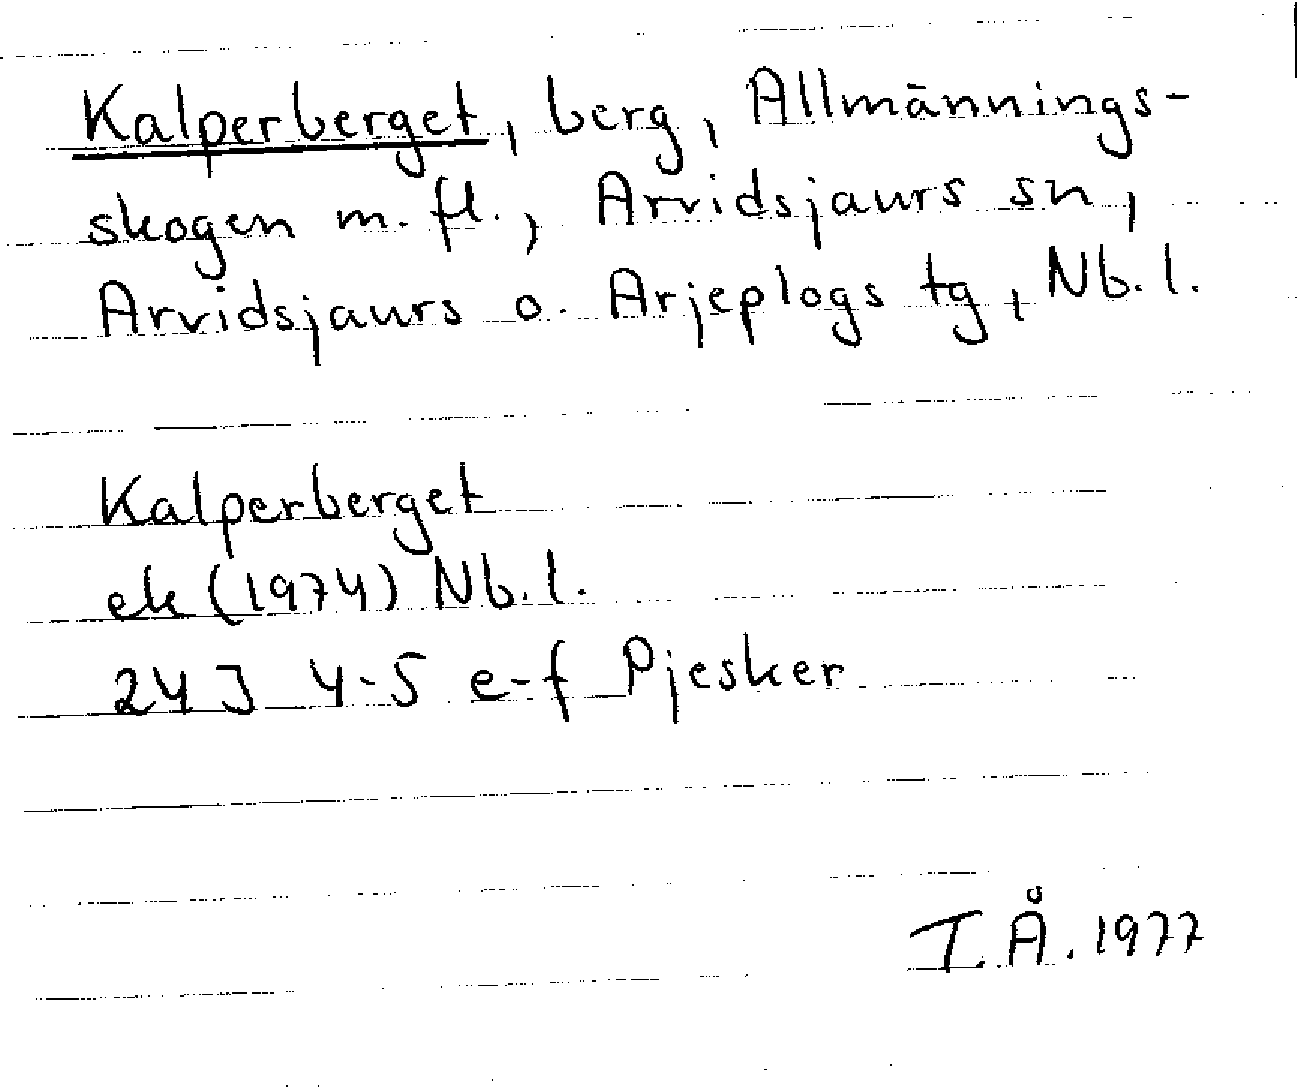 Kalperberget, berg, Allmännings-
skogen m.fl., Arvidsjaurs sn,
Arvidsjaurs o. Arjeplogs tg, Nb.l.
Kalperberget
ek (1974) Nb.l.
24J 4-5 e-f Pjesker
I.Å. 1977